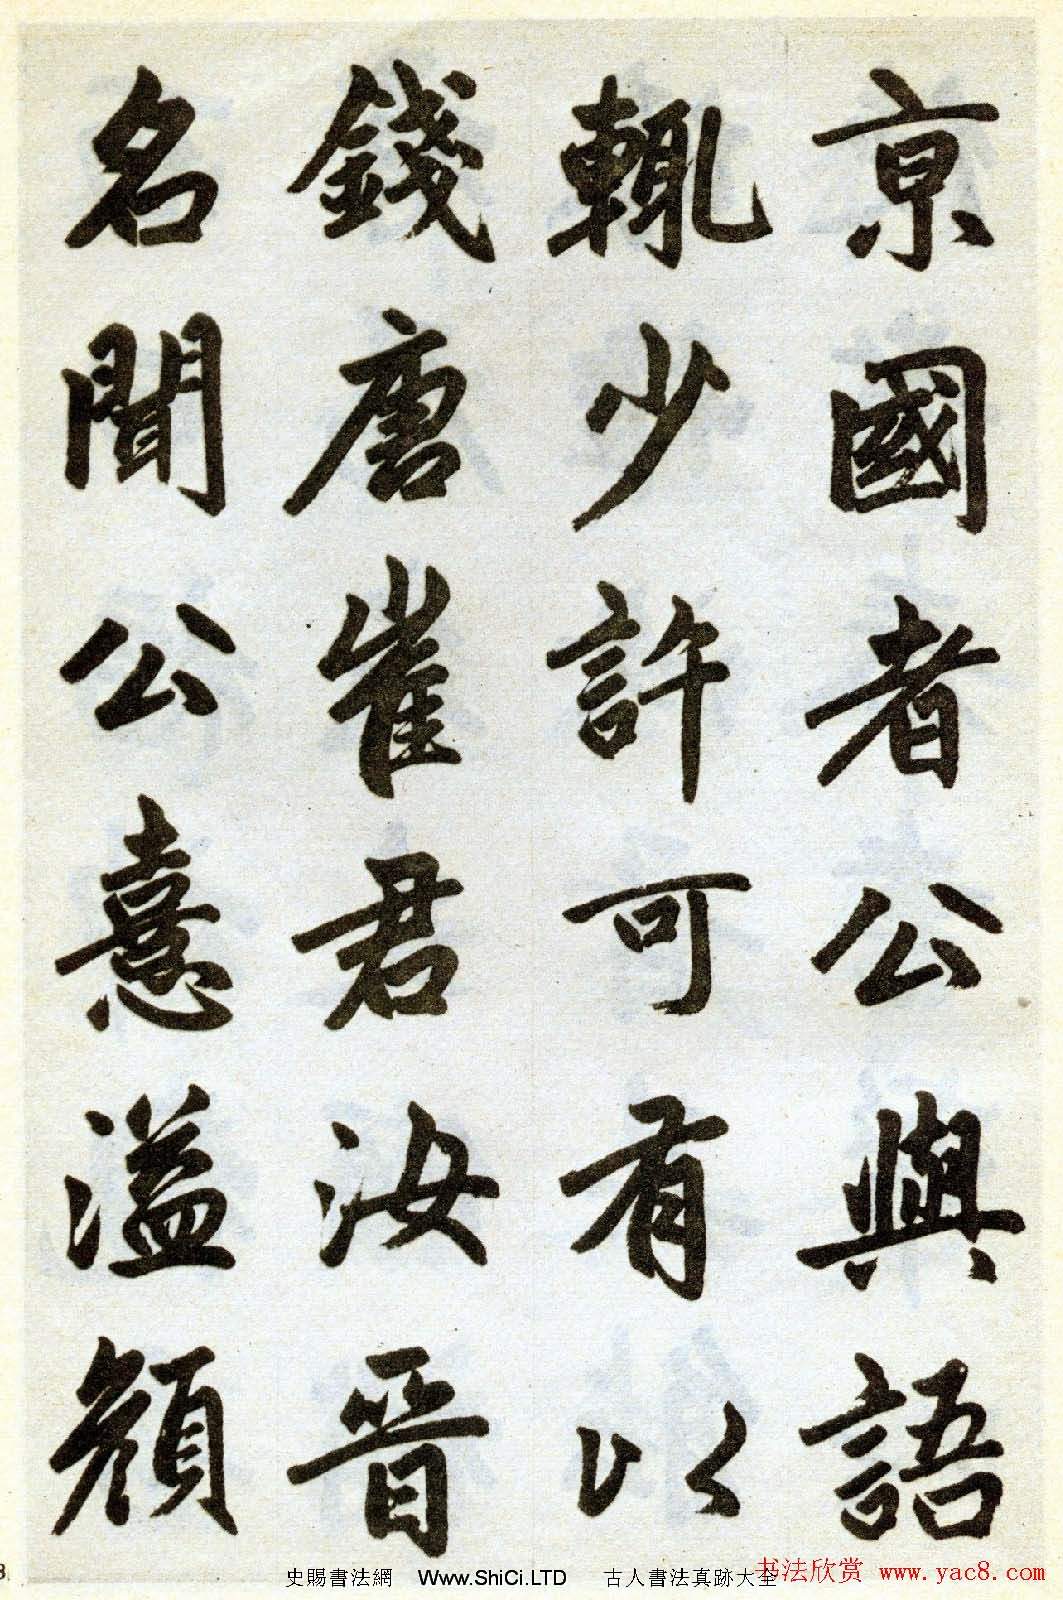 京國者公與語
輒少許可有以
錢唐崔君汝晉
名聞公憙溢顏
史賜書法網 Www.ShiCi.LTD 古人書法真跡大全
书法欣赏 www.yac8.com